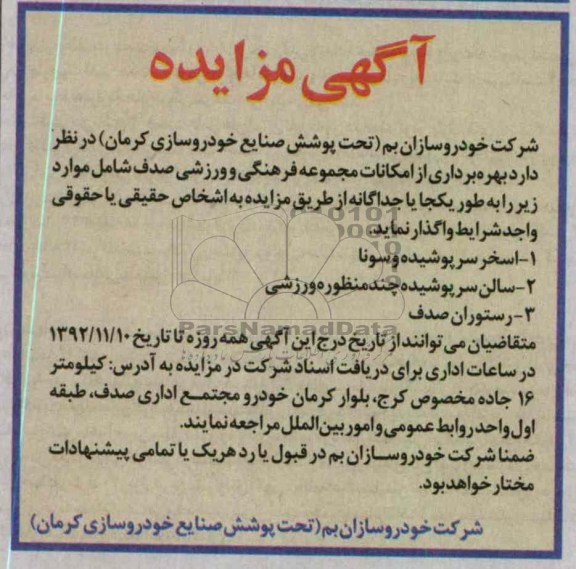 آگهی مزایده
شرکت خودروسازان بم (تحت پوشش صنایع خودروسازی کرمان) در نظر
دارد بهره برداری از امکانات مجموعه فرهنگی و ورزشی صدف شامل موارد
زیر را به طور یکجا یا جداگانه از طریق مزایده به اشخاص حقیقی یا حقوقی
واجد شرایط واگذار نماید.
۱-اسخر سرپوشیده و سونا
۲-سالن سرپوشیده چند منظوره ورزشی
۳-رستوران صدف
ParsNamadData
متقاضیان می توانند از تاریخ درج این آگهی همه روزه تا تاریخ ۱۳۹۲/۱۱/۱۰
در ساعات اداری برای دریافت اسناد شرکت در مزایده به آدرس: کیلومتر
۱۶ جاده مخصوص کرج، بلوار کرمان خودرو مجتمع اداری صدف، طبقه
اول واحد روابط عمومی و امور بین الملل مراجعه نمایند.
ضمنا شرکت خودروسازان بم در قبول یا رد هریک یا تمامی پیشنهادات
مختار خواهد بود.
شرکت خودروسازان بم (تحت پوشش صنایع خودروسازی کرمان)